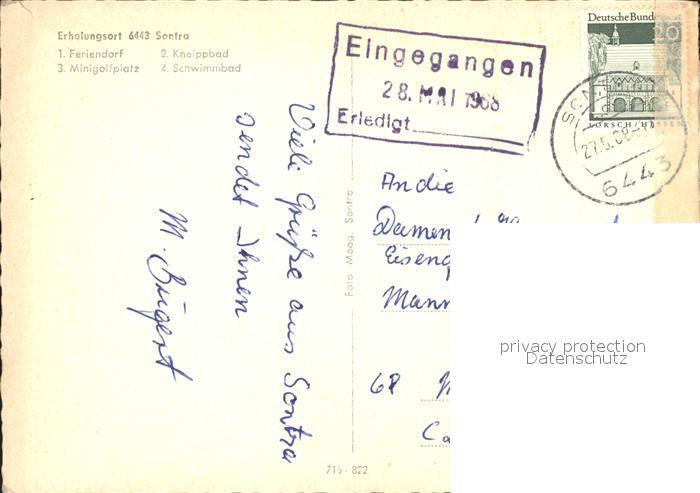 Erholungsort 6443 Sontra
1. Feriendorf 2. Kneippbad
3. Minigolfplatz 4. Schwimmbad
Eingegangen
28. MAI 1968
Erledigt
Deutsche Bund
20
LORSCH/HESSEN
27.5.68
6443
Viele Grüße aus Sontra
sendet Ihnen
M.
Foto Maag, Sontra
An die
Damen
Eisen
Mann
68
Ca
715 - 822
privacy protection
Datenschutz